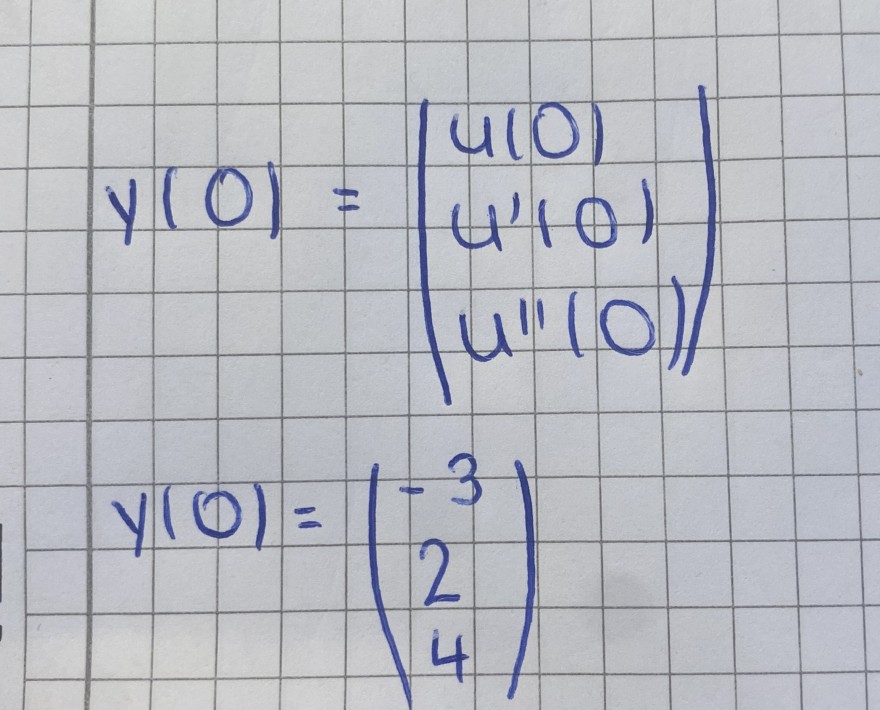 y(0) = (u(0)
u'(0)
u''(0))
y(0) = (-3
2
4)